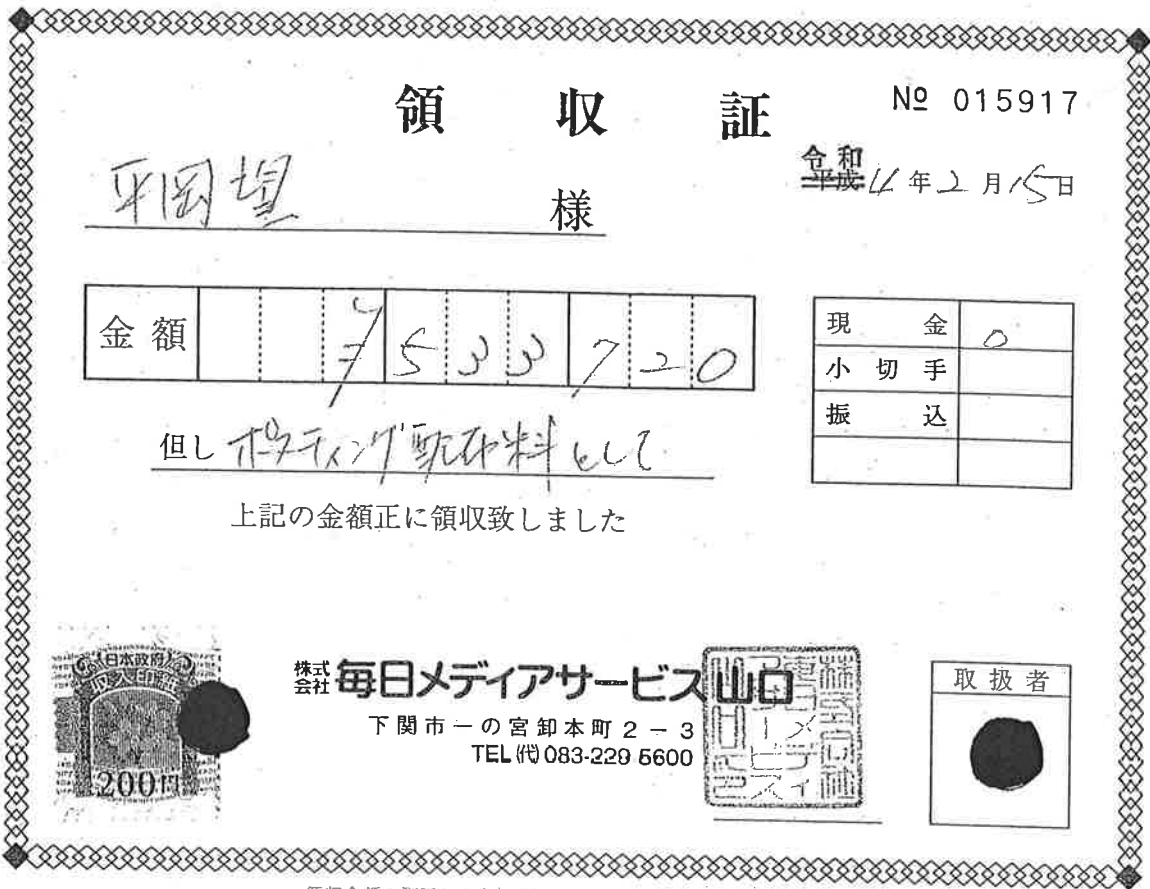 領収証
№ 015917
令和
平成 4年2月15日
平岡望 様
金額 ¥533720
現金 0
小切手
振込
但し ポスティング配布料として
上記の金額正に領収致しました
日本政府
収入印紙
200円
株式会社 毎日メディアサービス山口
下関市一の宮卸本町2-3
TEL(代)083-229-5600
取扱者